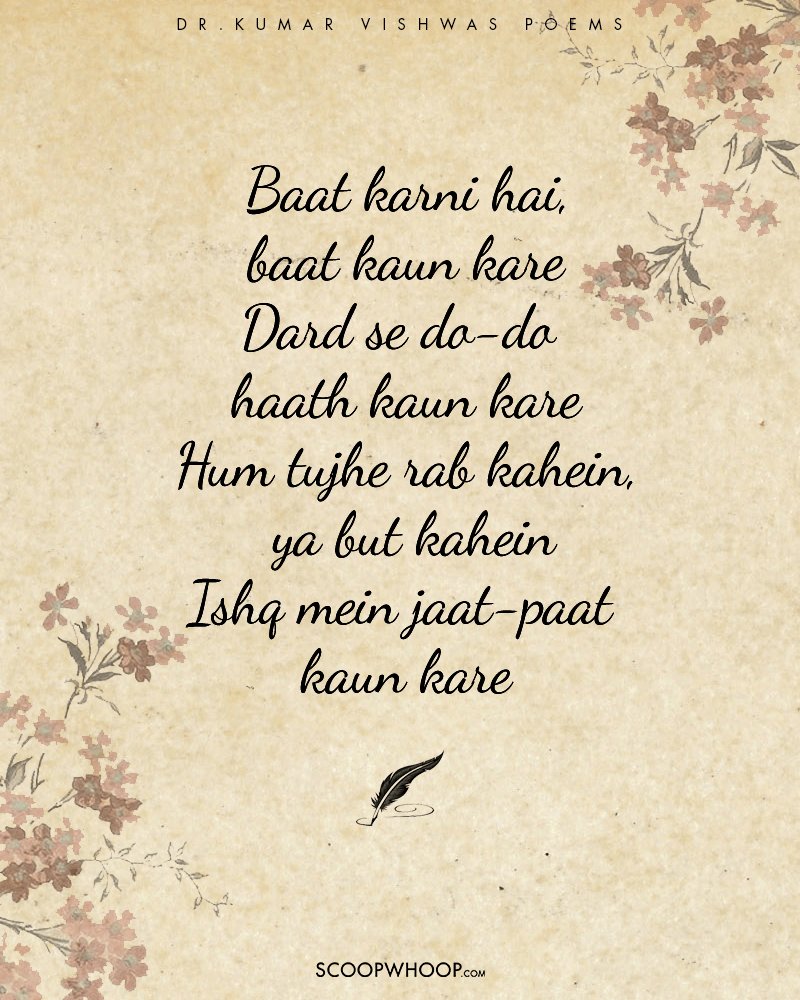 DR.KUMAR VISHWAS POEMS
Baat karni hai,
baat kaun kare
Dard se do-do
haath kaun kare
Hum tujhe rab kahein,
ya but kahein
Ishq mein jaat-paat
kaun kare
SCOOPWHOOP.COM